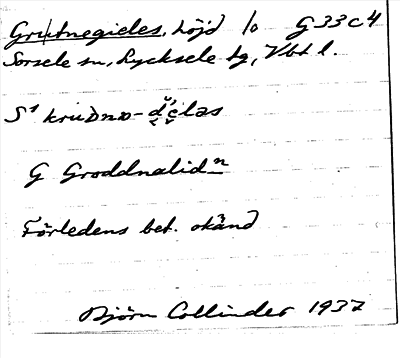 Grutnegieles, höjd lo G33c4
Sorsele sn, Lycksele tg, Vbt l.
G Groddnalidⁿ
Förledens bet. okänd
Björn Collinder 1937